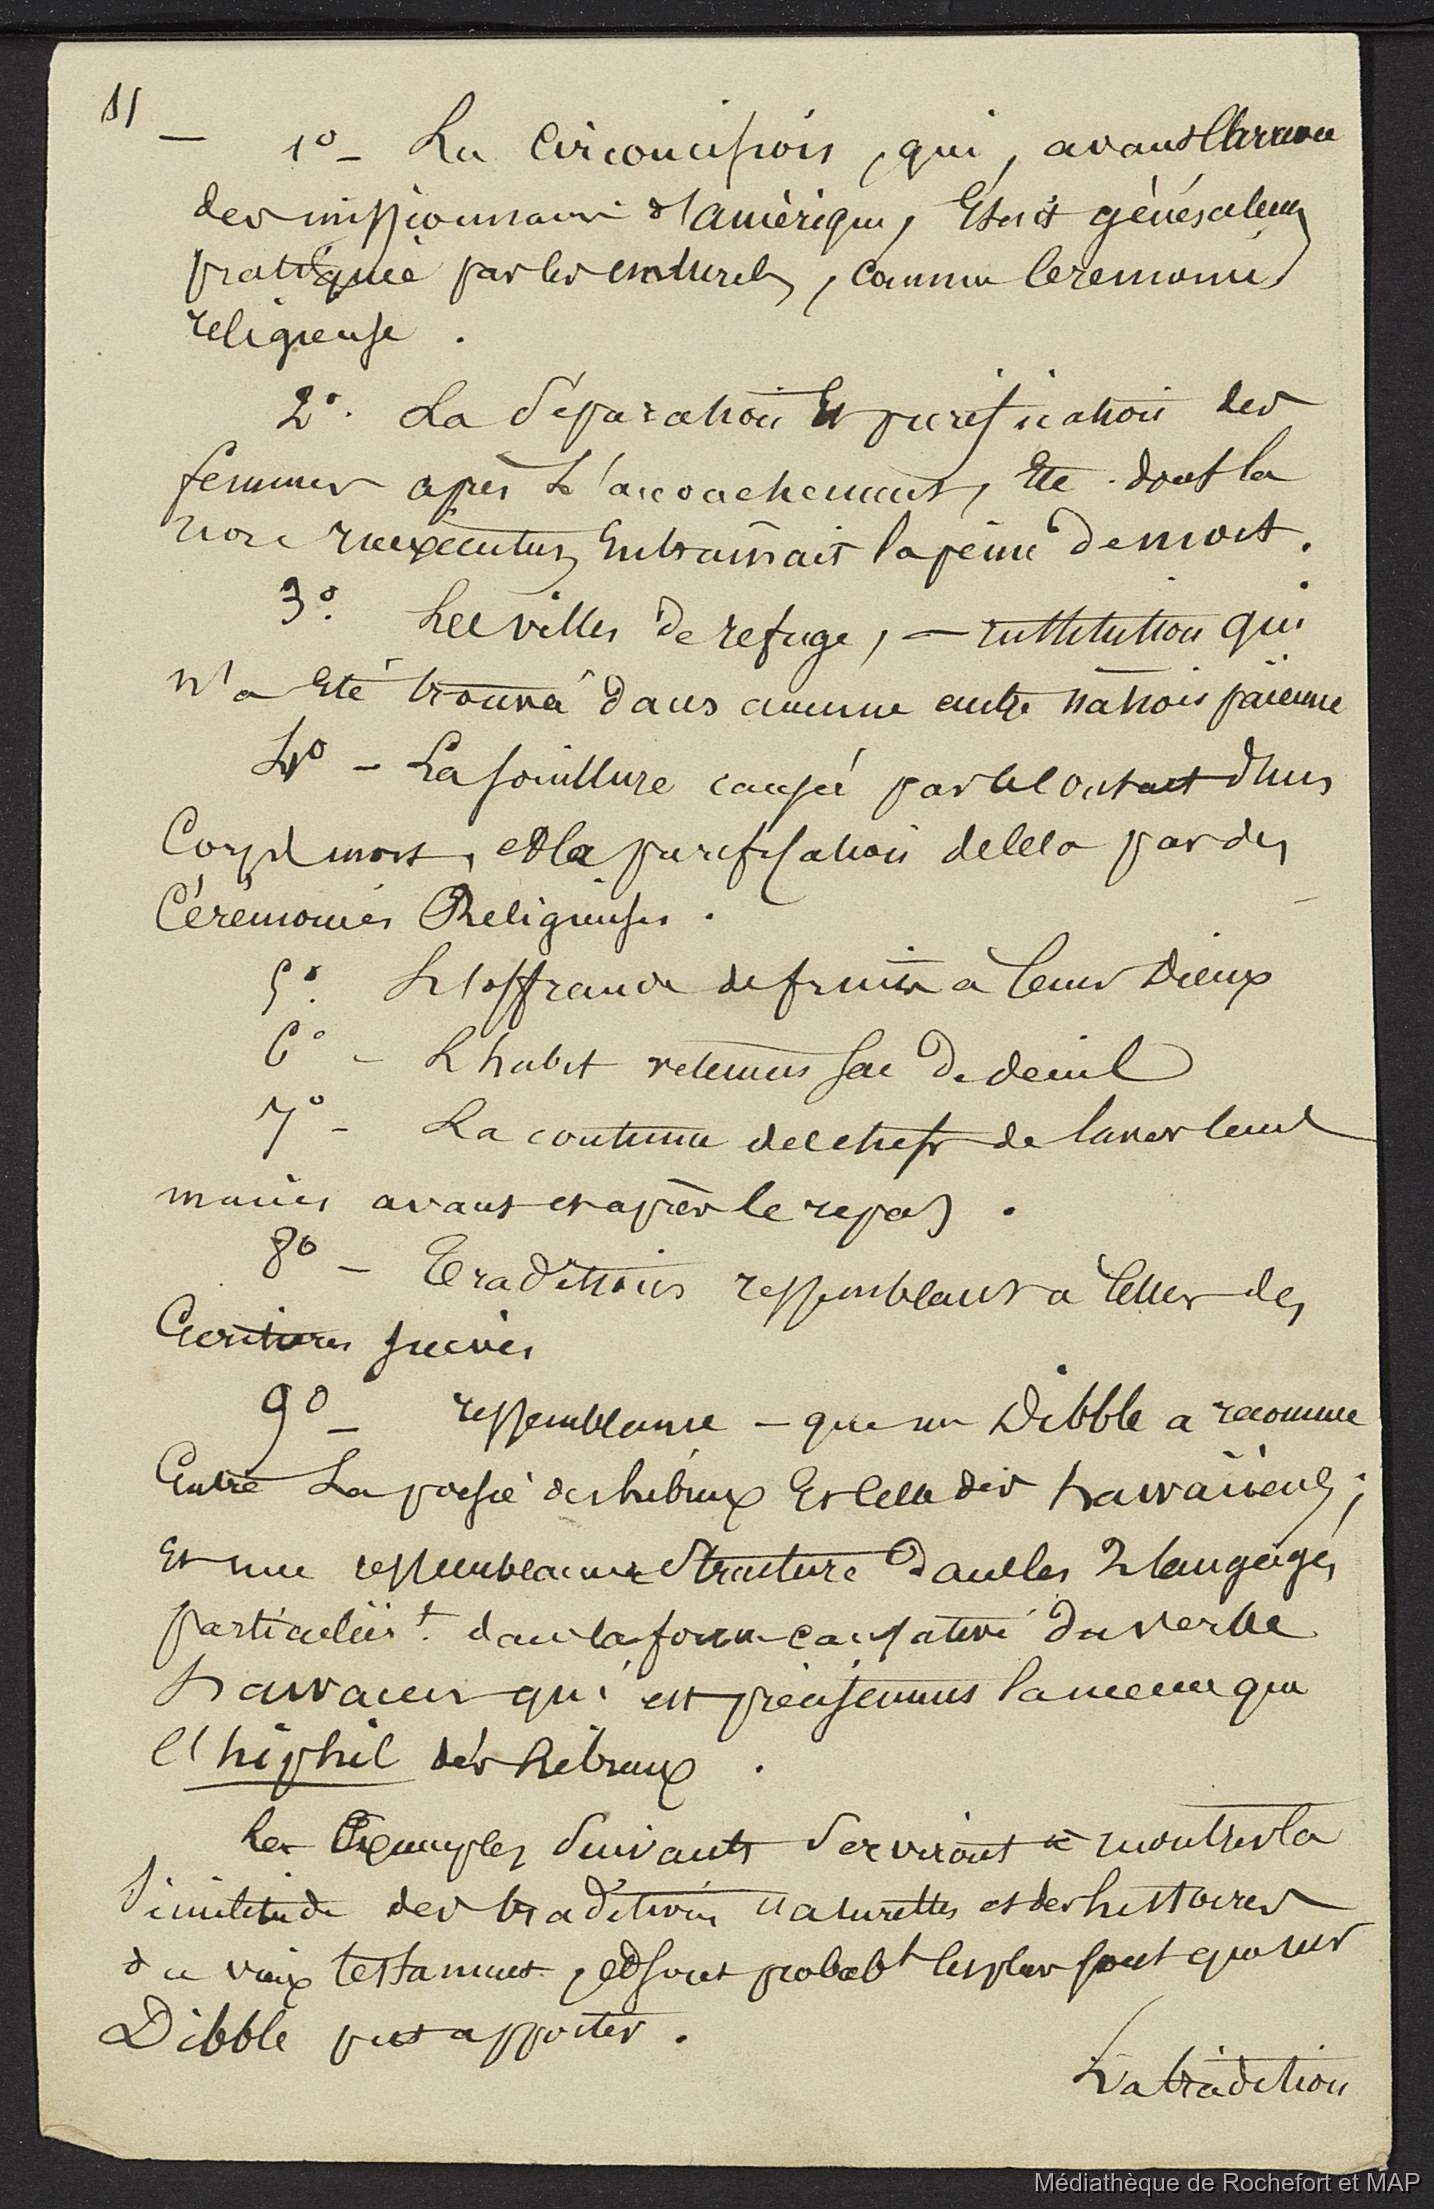 11
— 1º — La Circoncision, qui, avant l'arrivée
des missionnaires d'amérique, Etait généralem
pratiquée par les naturels, comme Ceremonie
religieuse.
2º. La Séparation Et purification des
femmes après L'accouchement, Etc. dont la
non Entraînait la peine de mort.
3º. Les villes de refuge, — institution qui
n'a Eté trouvé dans aucune autre nation païenne
4º — La souillure causée par le contact d'un
Corps mort, et la purification de cela par des
Cérémonies Religieuses.
5º. L'offrande de fruits à leurs Dieux
6º — L'habit sac De deuil
7º — La coutume des chefs de laver leurs
mains avant et après le repas.
8º — Traditions ressemblant a celles des
Ecritures sacrées
9º — ressemblance — que mr Dibble a reconnue
Entre La poésie des hébreux Et celle des hawaiiens;
Et une ressemblance Structure Dans les 2 langages,
particulièrt. dans la forme causative Du verbe
hawaien qui est précisement la meme que
l'hiphil des hébreux.
Les Exemples Suivants Serviront à montrer la
Similitude des traditions naturelles et des histoires
du vieux testament, et sont probablt les plus fort que mr
Dibble put apporter.
La tradition
Médiathèque de Rochefort et MAP